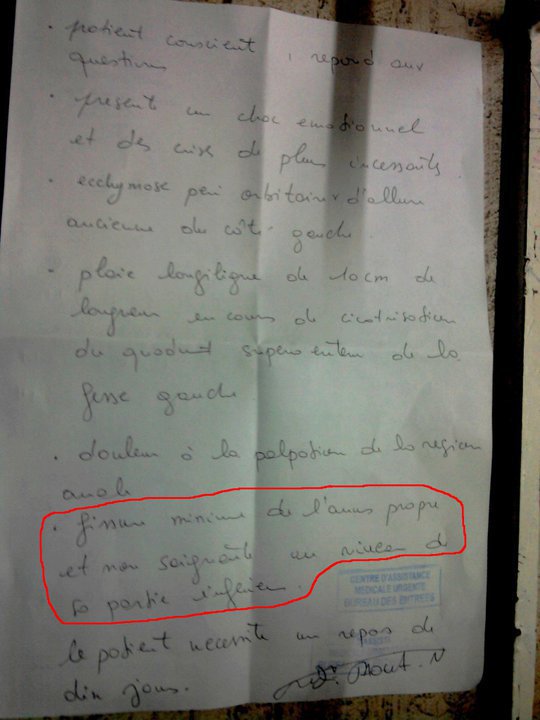 . patient conscient, repond aux
questions
. présente un choc emotionnel
et des crise de pleurs incessants.
. ecchymose peri orbitaire d'allure
ancienne du côté gauche.
. plaie longiligne de 10cm de
longueur en cours de cicatrisation
du quadrant supero externe de la
fesse gauche
. douleur à la palpation de la region
anale
. fissure minime de l'anus propre
et non saignante au niveau de
sa partie inferieure.
le patient necessite un repos de
dix jours.
CENTRE D'ASSISTANCE
MEDICALE URGENTE
BUREAU DES ENTREES
Dr.